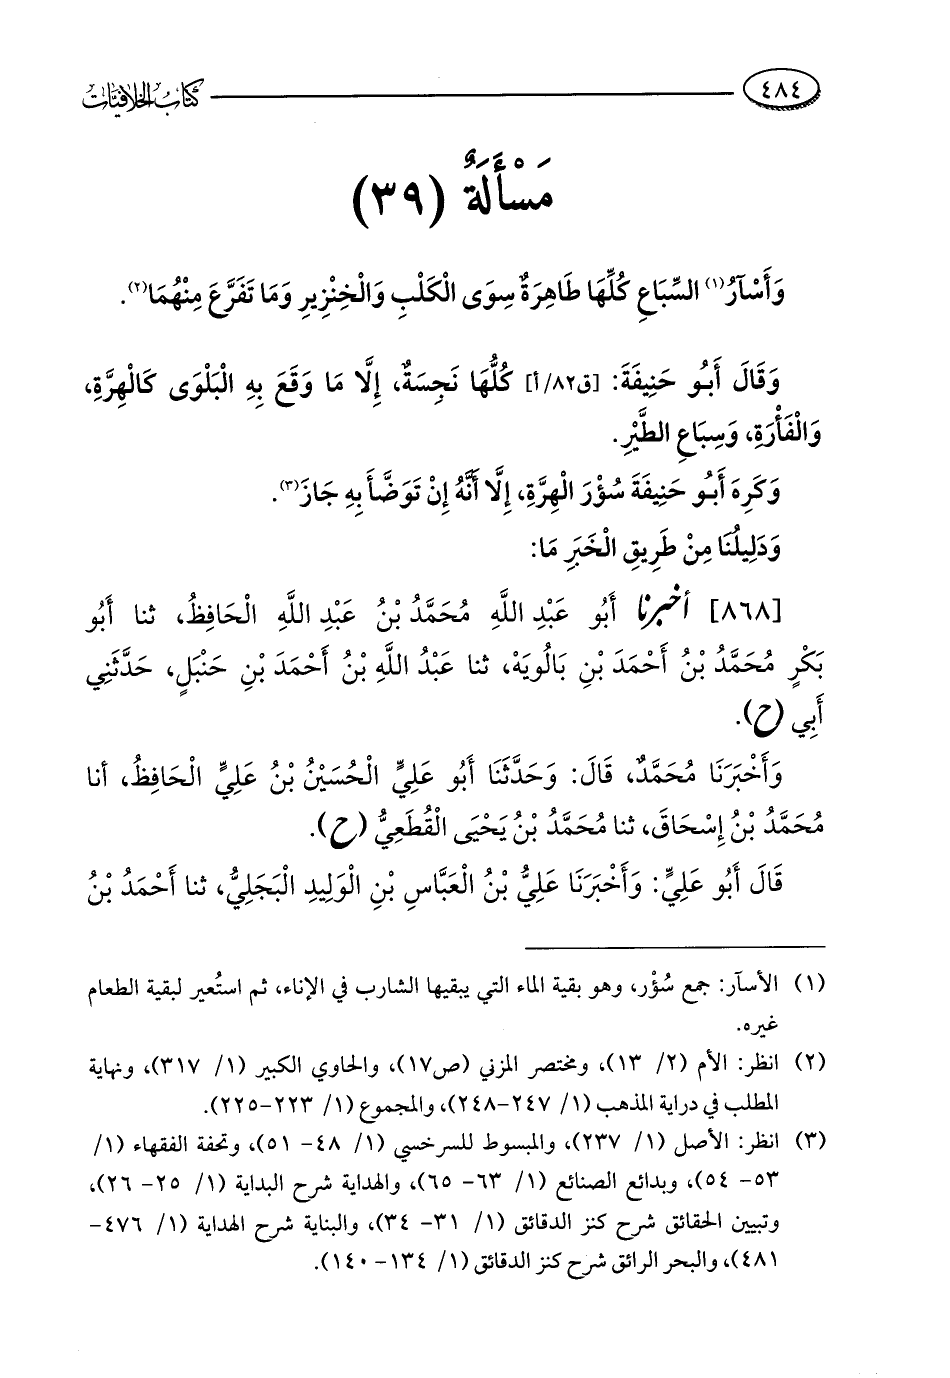 ٤٨٤ كتاب الخلافيات
مَسْأَلَةٌ (٣٩)
وَأَسْآرُ(١) السِّبَاعِ كُلِّهَا طَاهِرَةٌ سِوَى الْكَلْبِ وَالْخِنْزِيرِ وَمَا تَفَرَّعَ مِنْهُمَا(٢).
وَقَالَ أَبُو حَنِيفَةَ: [ق٨٢/أ] كُلُّهَا نَجِسَةٌ، إِلَّا مَا وَقَعَ بِهِ الْبَلْوَى كَالْهِرَّةِ،
وَالْفَأْرَةِ، وَسِبَاعِ الطَّيْرِ.
وَكَرِهَ أَبُو حَنِيفَةَ سُؤْرَ الْهِرَّةِ، إِلَّا أَنَّهُ إِنْ تَوَضَّأَ بِهِ جَازَ(٣).
وَدَلِيلُنَا مِنْ طَرِيقِ الْخَبَرِ مَا:
[٨٦٨] أخبرنا أَبُو عَبْدِ اللَّهِ مُحَمَّدُ بْنُ عَبْدِ اللَّهِ الْحَافِظُ، ثنا أَبُو
بَكْرٍ مُحَمَّدُ بْنُ أَحْمَدَ بْنِ بَالُويَهْ، ثنا عَبْدُ اللَّهِ بْنُ أَحْمَدَ بْنِ حَنْبَلٍ، حَدَّثَنِي
أَبِي (ح).
وَأَخْبَرَنَا مُحَمَّدٌ، قَالَ: وَحَدَّثَنَا أَبُو عَلِيٍّ الْحُسَيْنُ بْنُ عَلِيٍّ الْحَافِظُ، أنا
مُحَمَّدُ بْنُ إِسْحَاقَ، ثنا مُحَمَّدُ بْنُ يَحْيَى الْقُطَعِيُّ (ح).
قَالَ أَبُو عَلِيٍّ: وَأَخْبَرَنَا عَلِيُّ بْنُ الْعَبَّاسِ بْنِ الْوَلِيدِ الْبَجَلِيُّ، ثنا أَحْمَدُ بْنُ
(١) الأسآر: جمع سُؤْر، وهو بقية الماء التي يبقيها الشارب في الإناء، ثم استُعير لبقية الطعام
غيره.
(٢) انظر: الأم (٢/ ١٣)، ومختصر المزني (ص١٧)، والحاوي الكبير (١/ ٣١٧)، ونهاية
المطلب في دراية المذهب (١/ ٢٤٧-٢٤٨)، والمجموع (١/ ٢٢٣-٢٢٥).
(٣) انظر: الأصل (١/ ٢٣٧)، والمبسوط للسرخسي (١/ ٤٨- ٥١)، وتحفة الفقهاء (١/
٥٣- ٥٤)، وبدائع الصنائع (١/ ٦٣- ٦٥)، والهداية شرح البداية (١/ ٢٥- ٢٦)،
وتبيين الحقائق شرح كنز الدقائق (١/ ٣١- ٣٤)، والبناية شرح الهداية (١/ ٤٧٦-
٤٨١)، والبحر الرائق شرح كنز الدقائق (١/ ١٣٤-١٤٠).